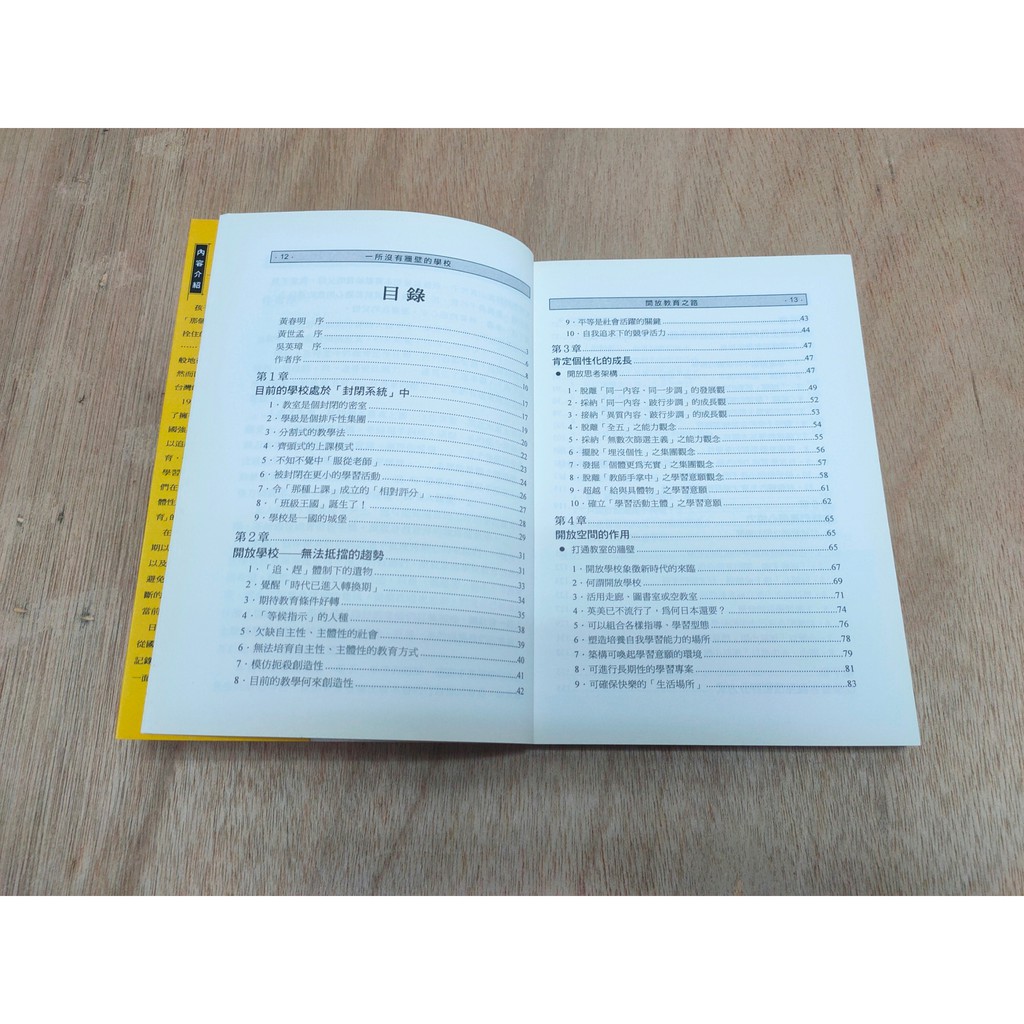 內容介紹
孩
「那種
拴住
般地
然而
台灣
19
了擁
國強
以追
育、
學習
們在
體性
育」的
在
期以
以及
避免
斷的
當前
日
從國
記錄
一面
· 12 · 一所沒有牆壁的學校
目錄
黃春明 序
黃世孟 序 1
吳英璋 序 6
作者序 8
第1章 16
目前的學校處於「封閉系統」中 17
1．教室是個封閉的密室 17
2．學級是個排斥性集團 19
3．分割式的教學法 20
4．齊頭式的上課模式 22
5．不知不覺中「服從老師」 23
6．被封閉在更小的學習活動 24
7．令「那種上課」成立的「相對評分」 26
8．「班級王國」誕生了！ 27
9．學校是一國的城堡 28
第2章 29
開放學校——無法抵擋的趨勢 31
1．「追、趕」體制下的遺物 31
2．覺醒「時代已進入轉換期」 33
3．期待教育條件好轉 34
4．「等候指示」的人種 35
5．欠缺自主性、主體性的社會 38
6．無法培育自主性、主體性的教育方式 39
7．模仿扼殺創造性 40
8．目前的教學何來創造性 41
42
開放教育之路 · 13 ·
9．平等是社會活躍的關鍵 43
10．自我追求下的競爭活力 44
第3章 47
肯定個性化的成長
● 開放思考架構 47
1．脫離「同一內容、同一步調」的發展觀 49
2．採納「同一內容、跛行步調」的成長觀 52
3．接納「異質內容、跛行步調」的成長觀 53
4．脫離「全五」之能力觀念 54
5．採納「無數次篩選主義」之能力觀念 55
6．擺脫「埋沒個性」之集團觀念 56
7．發掘「個體更為充實」之集團觀念 57
8．脫離「教師手掌中」之學習意願觀念 58
9．超越「給與具體物」之學習意願 61
10．確立「學習活動主體」之學習意願 62
第4章 65
開放空間的作用
● 打通教室的牆壁 65
1．開放學校象徵新時代的來臨 67
2．何謂開放學校 69
3．活用走廊、圖書室或空教室 71
4．英美已不流行了，為何日本還要？ 74
5．可以組合各樣指導、學習型態 76
6．塑造培養自我學習能力的場所 78
7．築構可喚起學習意願的環境 79
8．可進行長期性的學習專案 81
9．可確保快樂的「生活場所」 83